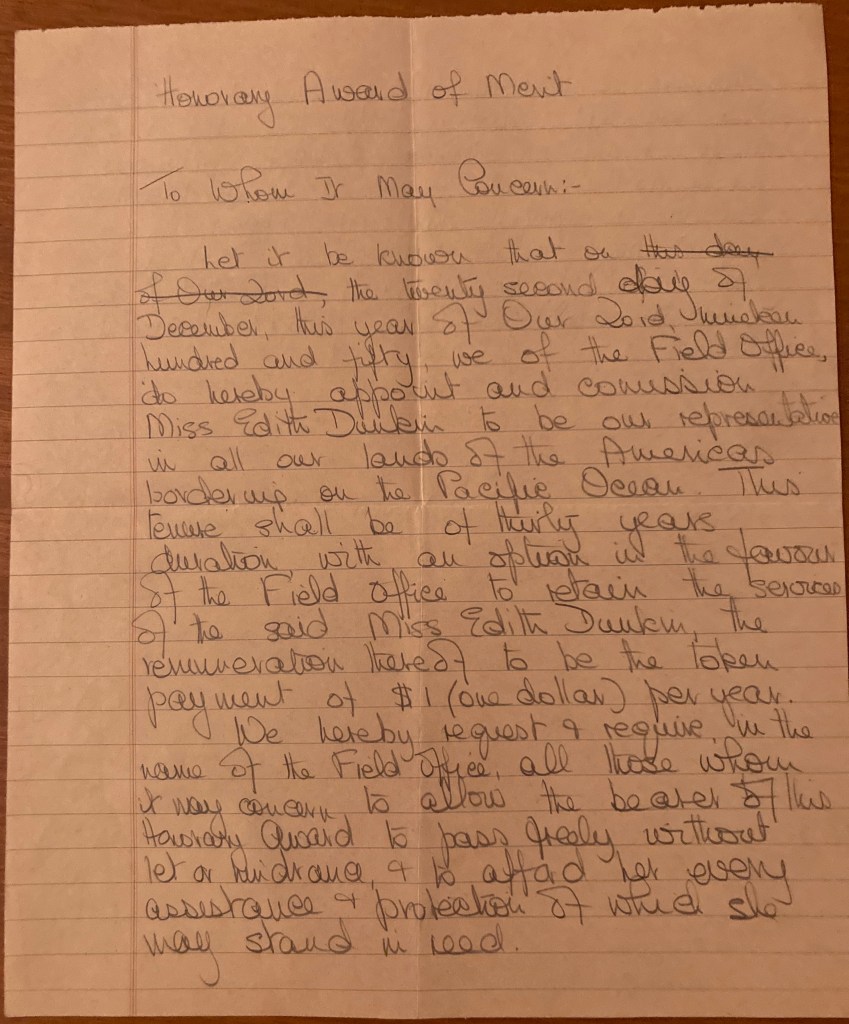 Honorary Award of Merit
To Whom It May Concern:-
Let it be known that on this day
of Our Lord, the twenty second day of
December, this year of Our Lord, nineteen
hundred and fifty, we of the Field Office,
do hereby appoint and comission
Miss Edith Dunkin to be our representative
in all our lands of the Americas
bordering on the Pacific Ocean. This
tenure shall be of thirty years
duration, with an option in the favour
of the Field Office to retain the services
of the said Miss Edith Dunkin, the
remuneration thereof to be the token
payment of $1 (one dollar) per year.
We hereby request & require, in the
name of the Field Office, all those whom
it may concern to allow the bearer of this
Honorary Award to pass freely without
let or hindrance, & to afford her every
assistance & protection of which she
may stand in need.